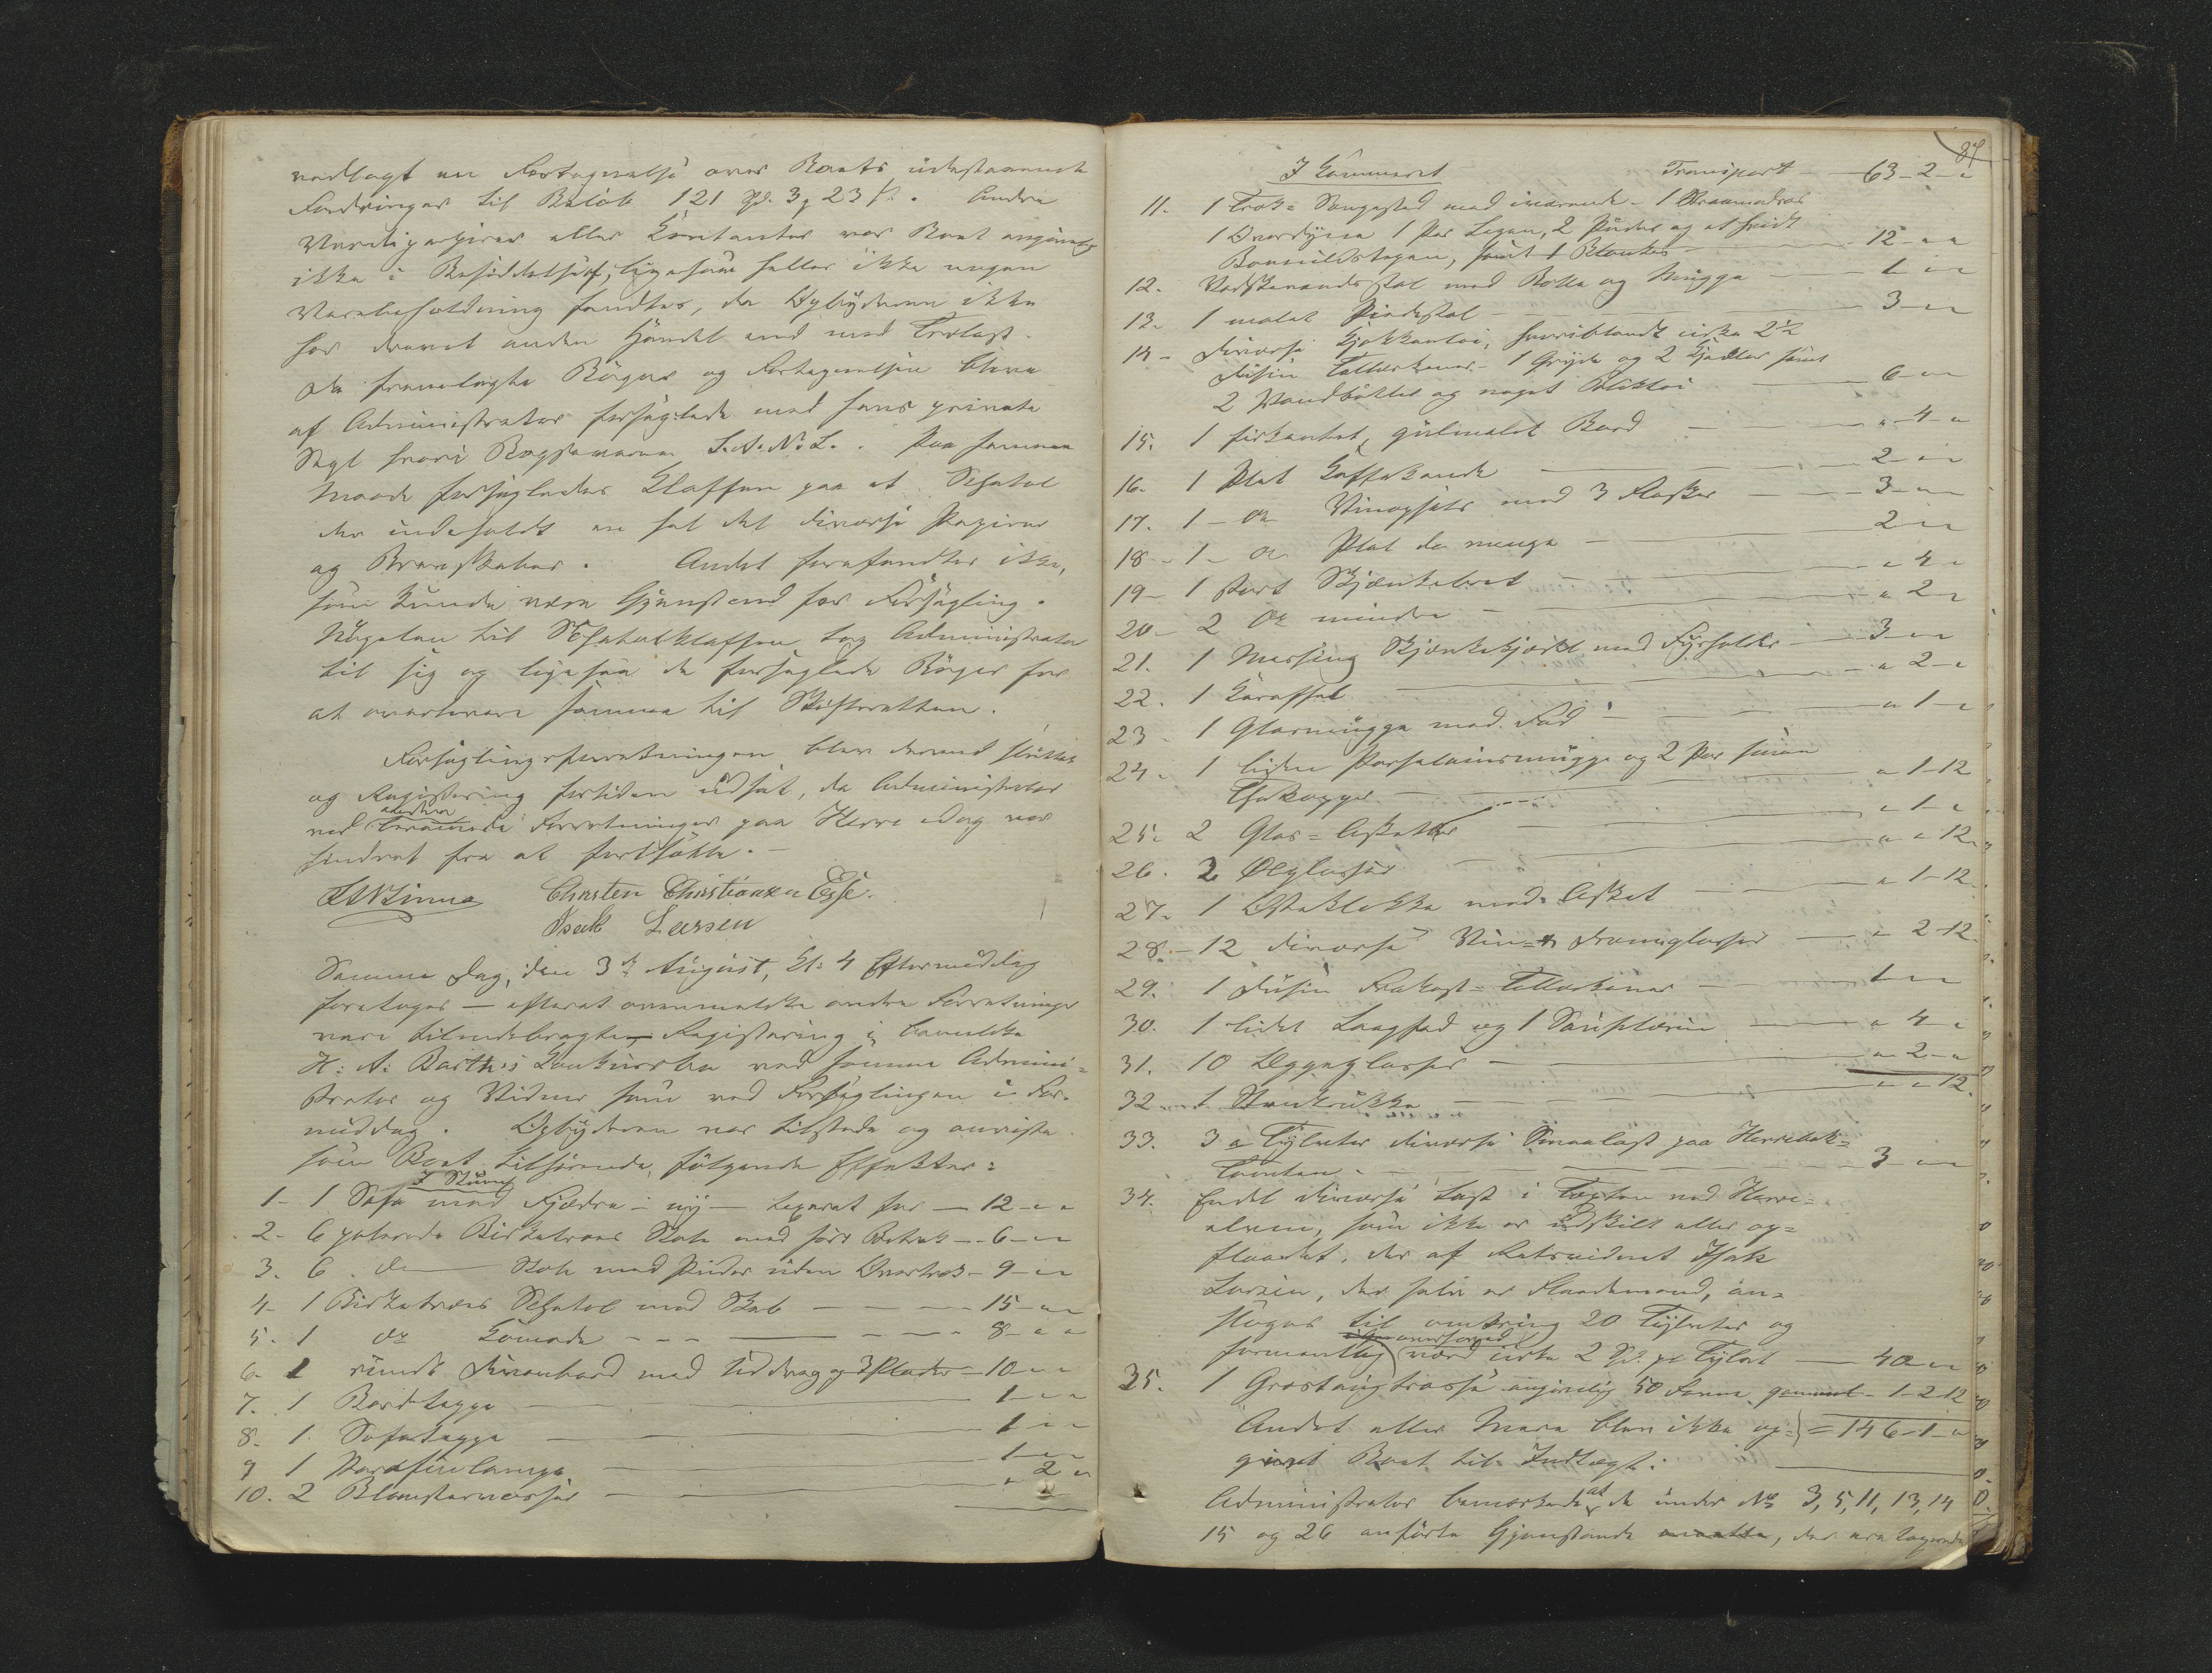 vedlagt en Fortegnelse over Boets udestaaende
Fordringer til Beløb 121 Spd. 3 y 23 s. Andre
Værdipapirer eller Contanter var Boet angivelig
ikke i Besiddelse af, ligesom heller ikke nogen
Varebeholdning fandtes, da Opbyderen ikke
har drevet anden Handel end med Trælast.
De fremlagte Bøger og Fortegnelsen bleve
af Administrator forseglede med hans private
Segl hvori Bogstaverne L.A.N.L. Paa samme
Maade forsegledes Klaffen paa et Schatol
der indeholdt en hel del diverse Papirer
og Brevskaber. Andet forefandtes ikke,
som kunde være Gjenstand for Forsegling.
Nøgelen til Schatolklaffen tog Administrator
til sig og ligesaa de forseglede Bøger for
at overlevere samme til Skifteretten.
Forseglingsforretningen blev dermed sluttet
og Registrering fortiden udsat, da Administrator
ved andre Forretninger paa Herre idag var
hindret fra at fortsætte.-
Christen Christiansen Esse.
Isack Larsen
Samme Dag, den 3de August, Kl: 4 Eftermiddag
foretoges - efterat ovenmeldte andre Forretninger
vare tilendebragte - Registrering i bemeldte
H: A: Barth's Konkursbo ved samme Admini-
strator og Vidner som ved Forseglingen i For-
middag. Opbyderen var tilstede og anviste
som Boet tilhørende følgende Effekter:
I Stuen
1- 1 Sofa med Fjædre - ny - taxeret for - 12 - " "
2- 6 polerede Birketræes Stole med sort Betræk - 6 - " "
3. 6 do Stole med Puder uden Overtræk - 9 - " "
4- 1 Birketræes Schatol med Skab - 15 - " "
5. 1 do Komode - 8 - " "
6. 1 rundt Divanbord med Uddrag og 3 Plader - 10 - " "
7. 1 Bordteppe - 1 - " "
8. 1 Sofateppe - 1 - " "
9 1 Parafinlampe - 1 - " "
10. 2 Blomstervaser - " 2 "
84
I Kammeret Transport - 63 - 2 - "
11. 1 Træk-Sengested med iværende - 1
1 Overdyne 1 Par Lagen, 2 Puder og et hvidt
Bomuldsteppe, samt 1 - 12 - " "
12. Vadskevandsstol med Bolle og Mugge - 1 - " "
13. 1 malet Pindestol - 3 - " "
14 - Diverse Kjøkkentøi, hvoriblandt cirka 2 1/2
Dusin Tallerkener - 1 Gryde og 2 Kjedler samt
2 Vandbøtter og noget Bliktøi - 6 - " "
15. 1 firkantet, gulmalet Bord - " 4 - "
16. 1 Plet Kaffekande - 2 - " "
17. 1 - do Vinopsats med 3 Flasker - 3 - " "
18 - 1 - do Plat de menage - 2 - " "
19 - 1 stort Skjænkebret - " 4 - "
20 - 2 do mindre - " 2 - "
21. 1 Messing med Fyrfad - 3 - " "
22. 1 Karaffel - " 2 - "
23 - 1 Glasmugge med Fad - " 1 - "
24 - 1 liden Porselainsmugge og 2 Par smaa
Thekopper - " 1 - 12
25. 2 Glas-Asjetter - " 1 - "
26. 2 Ølglasser - " " 12.
27. 1 Osteklokke med Asjet - " 1 - 12.
28. - 12 diverse Vin- & Dramglasser - " 2 - 12.
29. 1 Dusin Frokost-Tallerkener - 1 - " "
30. 1 lidet Laagfad og 1 - " 4 - "
31. 10 Æggeglasser - " 2 - "
32 - 1 - " " 12.
33. 3 a Tylvter diverse Smaalast paa Herrebæk-
Tomten. - 3 - " "
34. Endel diverse Last i ved Herre-
elven, som ikke er udskilt eller op-
flaadet, der af Retsvidnet Isak
Larsen, der selv er Flaademand, an-
sloges til omkring 20 Tylvter og
formentlig værd cirka 2 Spd. pr Tylvt - 40 - " "
35. 1 Græstougtrosse angivelig 50 Favne gammel - 1 - 2 - 12
Andet eller Mere blev ikke op- = 146 - 1 - "
givet Boet til Indtægt.
Administrator bemærkede at de under No 3, 5, 11, 13, 14
15 og 26 anførte Gjenstande, der ere